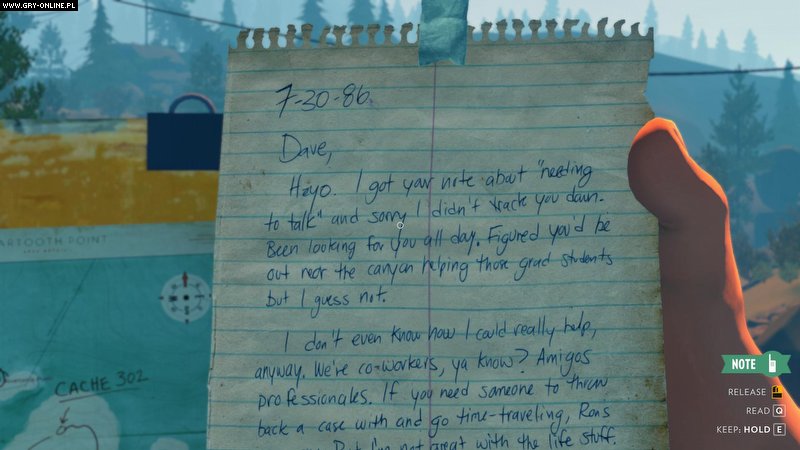 WWW.GRY-ONLINE.PL
7-30-86
Dave,
Heyo. I got your note about "needing
to talk" and sorry I didn't track you down.
Been looking for you all day. Figured you'd be
out near the canyon helping those grad students
but I guess not.
I don't even know how I could really help,
anyway. We're co-workers, ya know? Amigos
professionales. If you need someone to throw
back a case with and go time-traveling, Ron's
But I'm not great with the life stuff.
ARTOOTH POINT
CACHE 302
NOTE
RELEASE
READ Q
KEEP: HOLD E